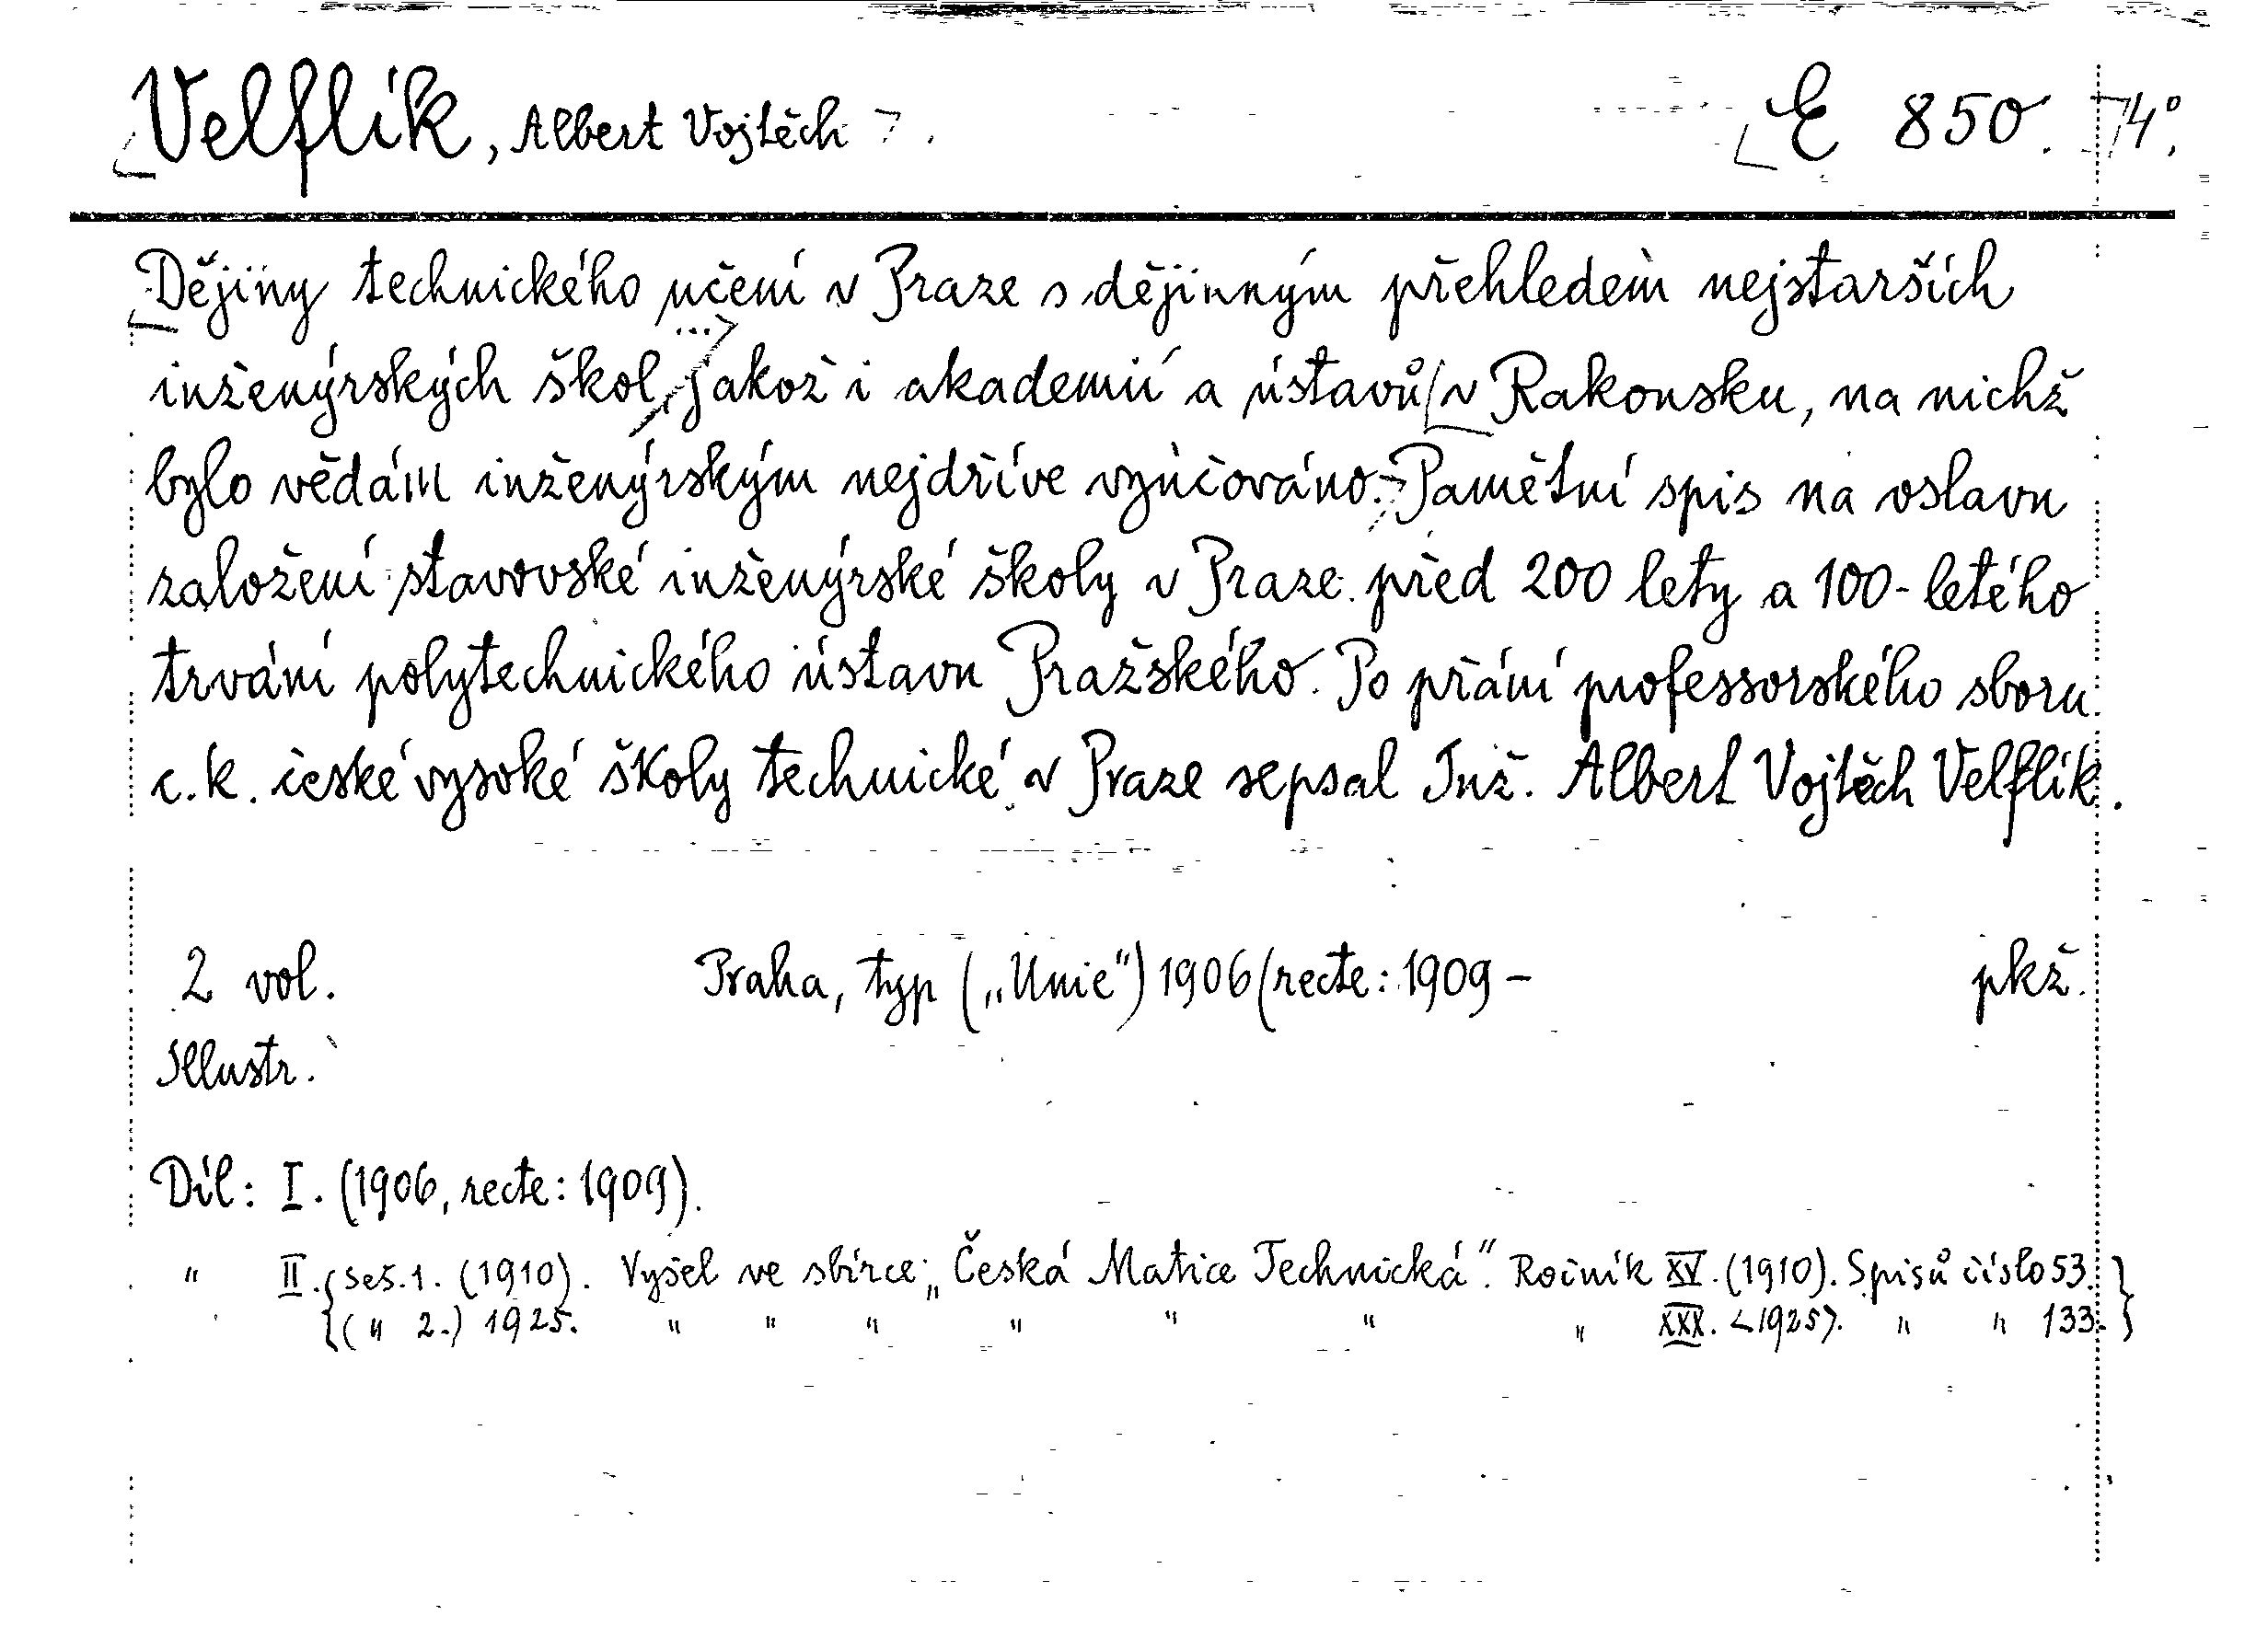 Velflík, Albert Vojtěch. E 850. 4°.
Dějiny technického učení v Praze s dějinným přehledem nejstarších
inženýrských škol, jakož i akademií a ústavů v Rakousku, na nichž
bylo vědám inženýrským nejdříve vyučováno. Pamětní spis na oslavu
založení stavovské inženýrské školy v Praze před 200 lety a 100-letého
trvání polytechnického ústavu Pražského. Po přání professorského sboru
c. k. české vysoké školy technické v Praze sepsal Inž. Albert Vojtěch Velflík.
2 vol. Praha, typ („Unie“) 1906 (recte: 1909 – pkž.
Illustr.
Díl: I. (1906, recte: 1909).
" II. { Seš. 1. (1910). Vyšel ve sbírce: „Česká Matice Technická“. Ročník XV. (1910). Spisů číslo 53. }
{ ( " 2.) 1925. " " " " " " " XXX. <1925>. " " 133. }